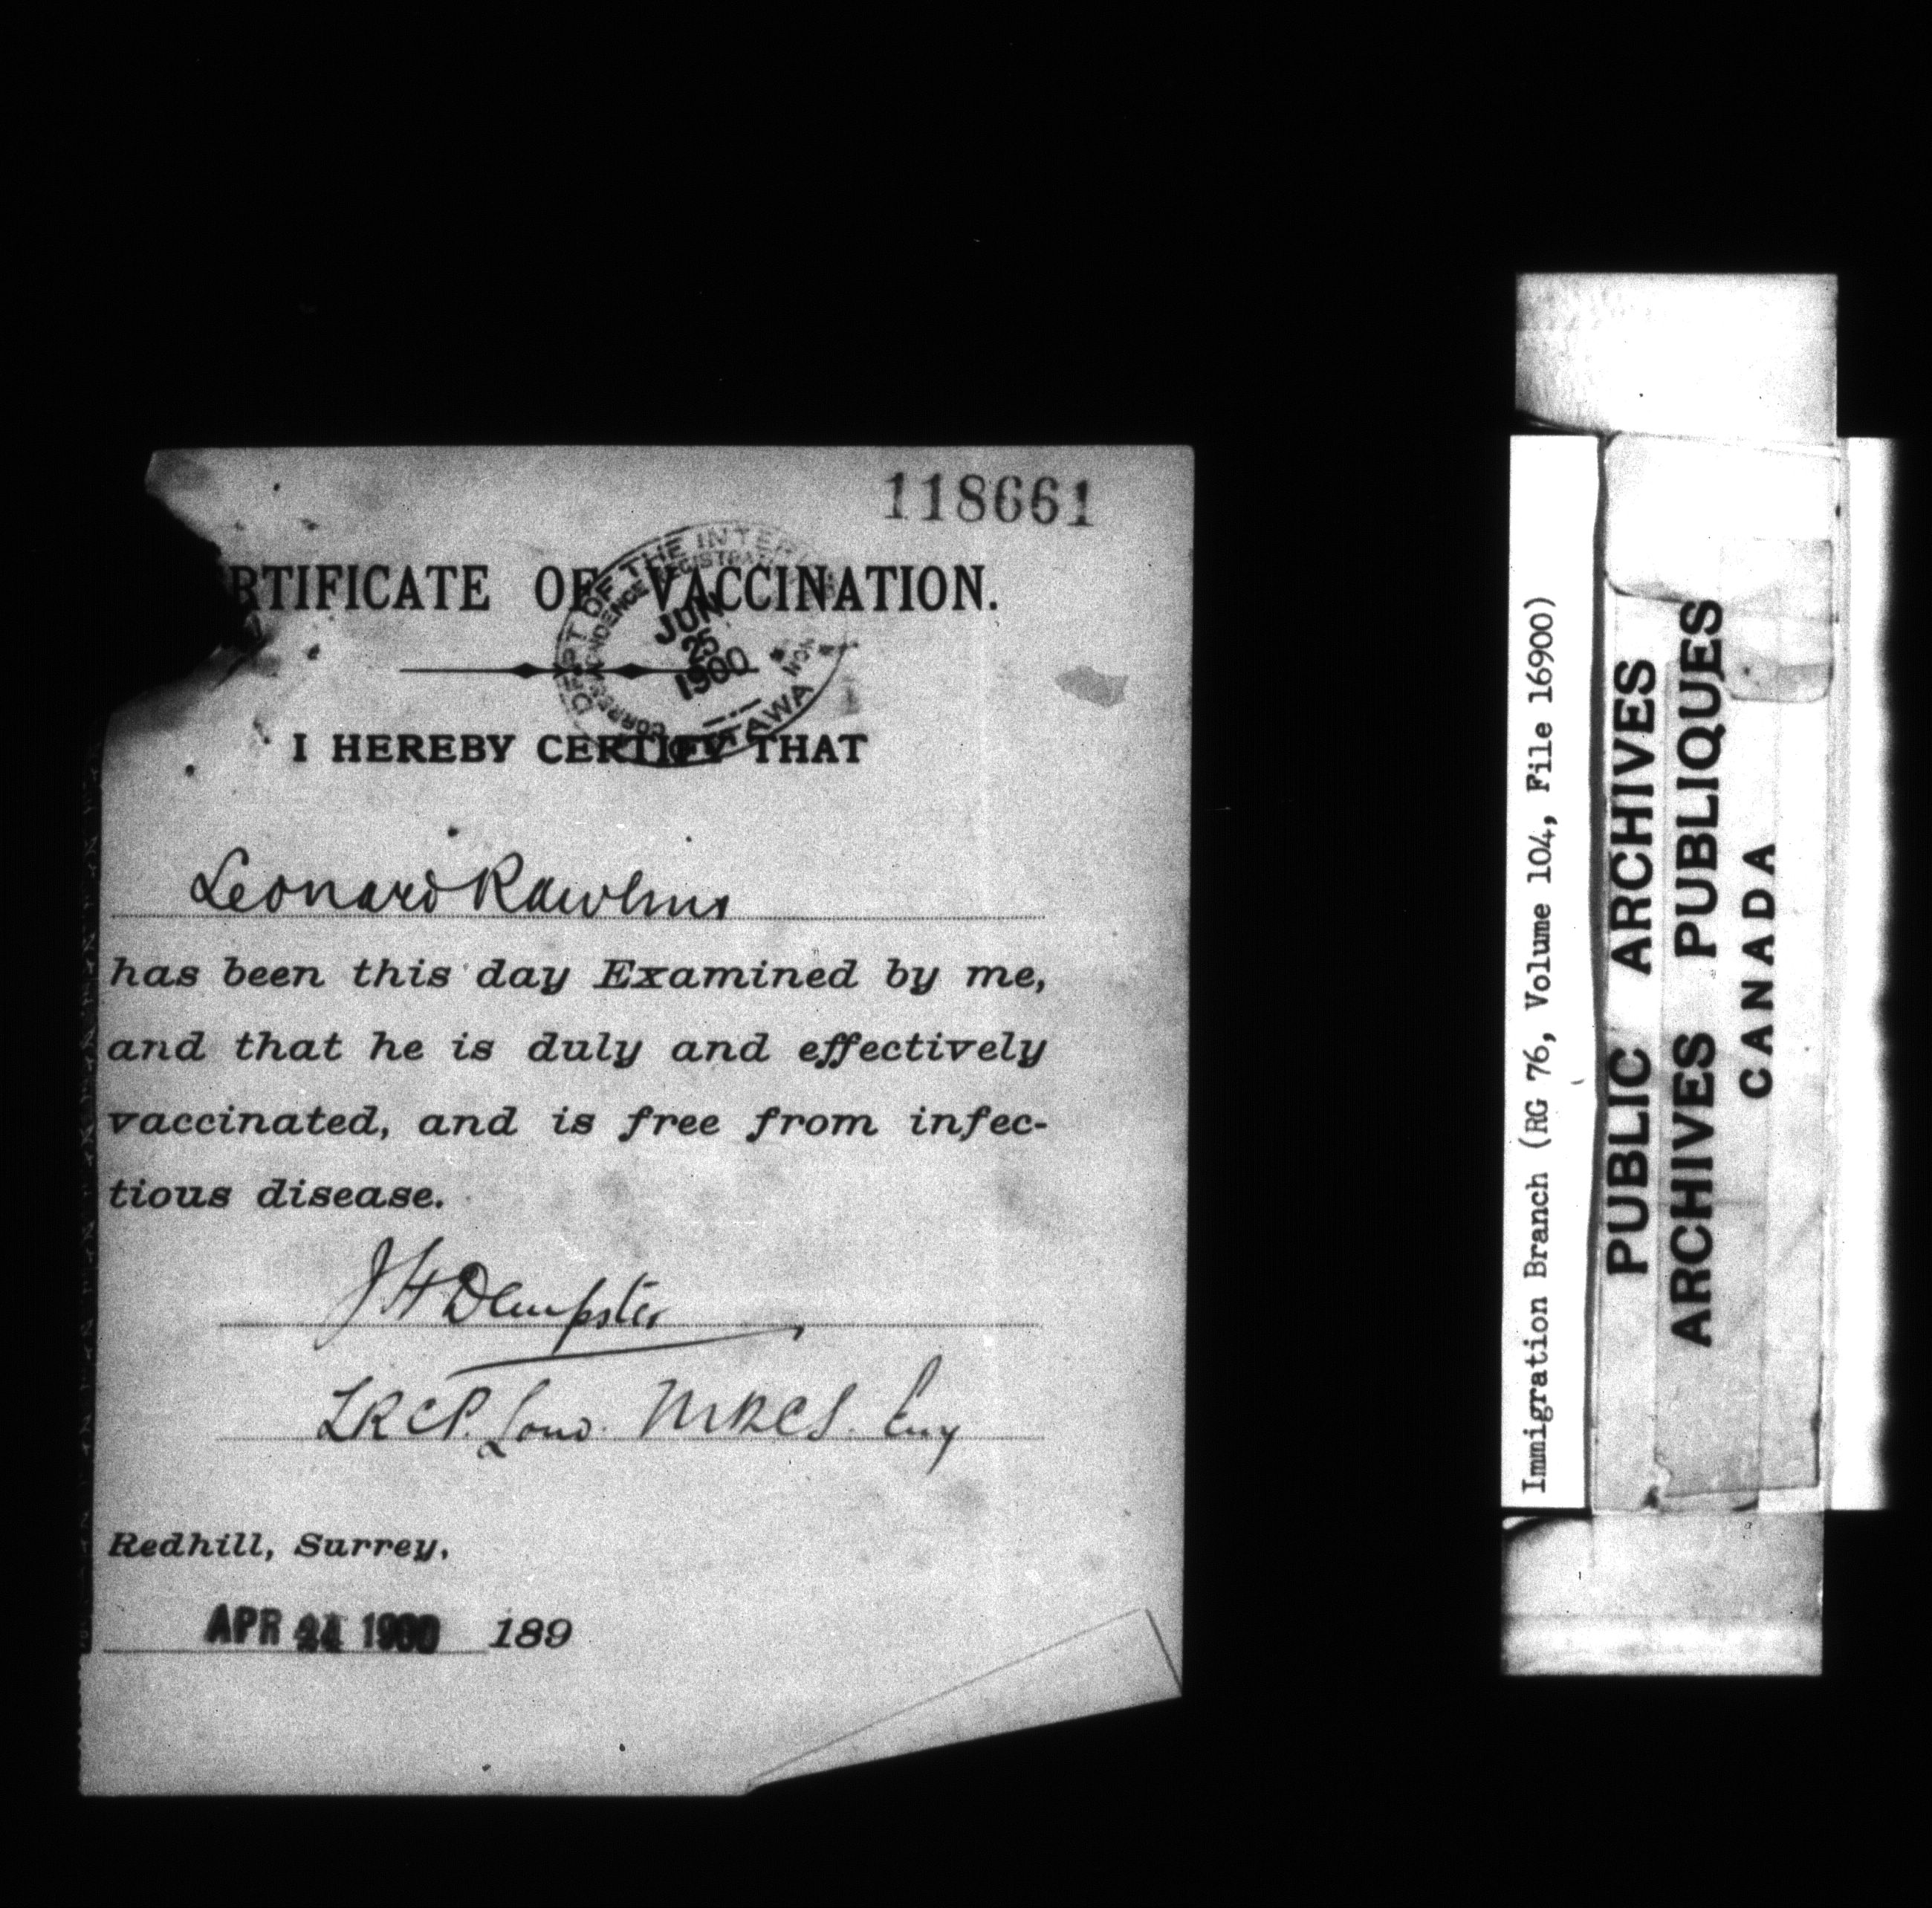 118661
RTIFICATE OF VACCINATION.
DEPT OF THE INTERIOR
CORRESPONDENCE REGISTRATION
JUN
25
1900
OTTAWA
I HEREBY CERTIFY THAT
Leonard Rawlins
has been this day Examined by me,
and that he is duly and effectively
vaccinated, and is free from infec-
tious disease.
J H Dempster
LRCP. Lond. MRCS. Eng
Redhill, Surrey,
APR 24 1900 189
Immigration Branch (RG 76, Volume 104, File 16900)
PUBLIC ARCHIVES
ARCHIVES PUBLIQUES
CANADA